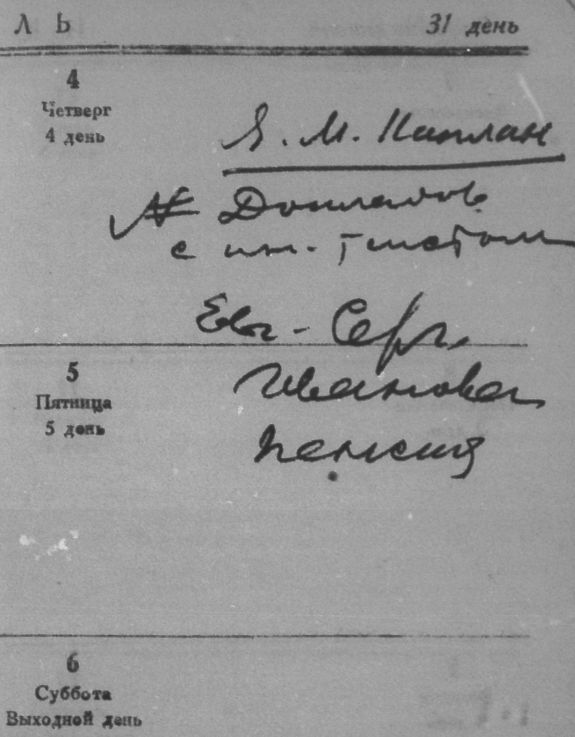 Л Ь 31 день
4
Четверг
4 день
Я. М. Каплан
№ Докладов
с ин. текстом
Евг. Серг.
Иванова
пенсия
5
Пятница
5 день
6
Суббота
Выходной день